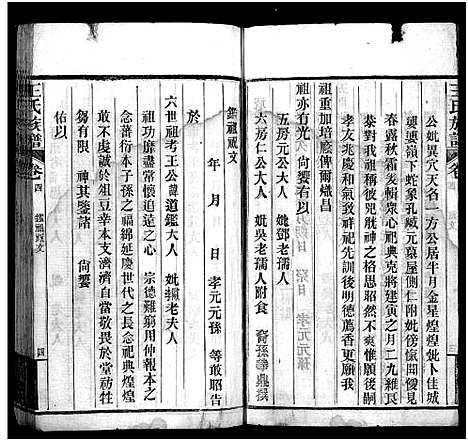 王氏族譜 卷四
公妣異穴天名一方公居半月金星煌煌妣卜佳城
嶺下蛇象孔臧元墓屋側仁附妣傍
春露秋霜爰輯眾心祀典克將建寅之月二九維良
恭對我祖稱彼兕觥神之格思昭然不大惟願後嗣
孝友兆慶和氣致祥祀先訓後明德薦香更願我
祖重加培蔭俾爾熾昌
祖亦有光 尚饗有以
五房元公大人 妣鄧老孺人
六房仁公大人 妣吳老孺人附食 裔孫 鼎撰
鑑祖祝文
年 月 日孝元元孫 等敢昭告
於
六世祖考王公諱道鑑大人 妣 老夫人
祖功靡盡常懷追遠之心 宗德難窮用伸報本之
念蓍衍本子孫之福綿延慶世代之長念祀典煌煌
敢不虔誠於祖豆幸本支濟濟自當敬畏於堂祊牲
芻有限 神其鑒諸 尚饗
佑以
王氏族譜 卷四 鑑祖祝文 四